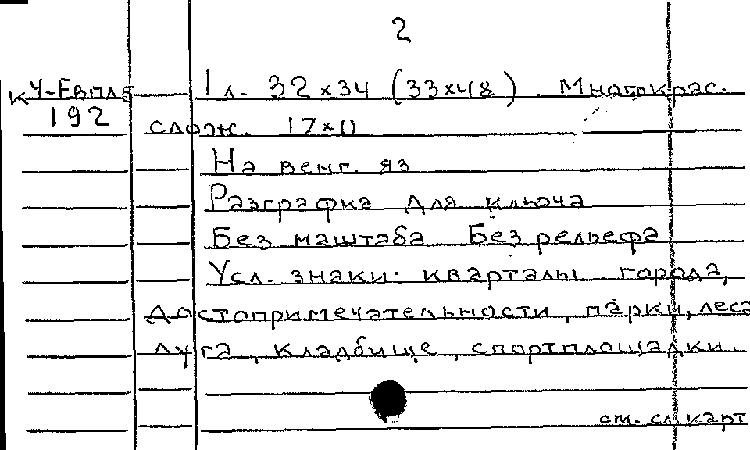 2
К Ч-Евпл8 1 л. 32×34 (33×48). Многокрас.
192 слож. 17×11
На венг. яз
Разграфка для ключа
Без маштаба Без рельефа
Усл. знаки: кварталы города,
достопримечательности, парки, леса
луга, кладбище, спортплощадки.
см. сл карт